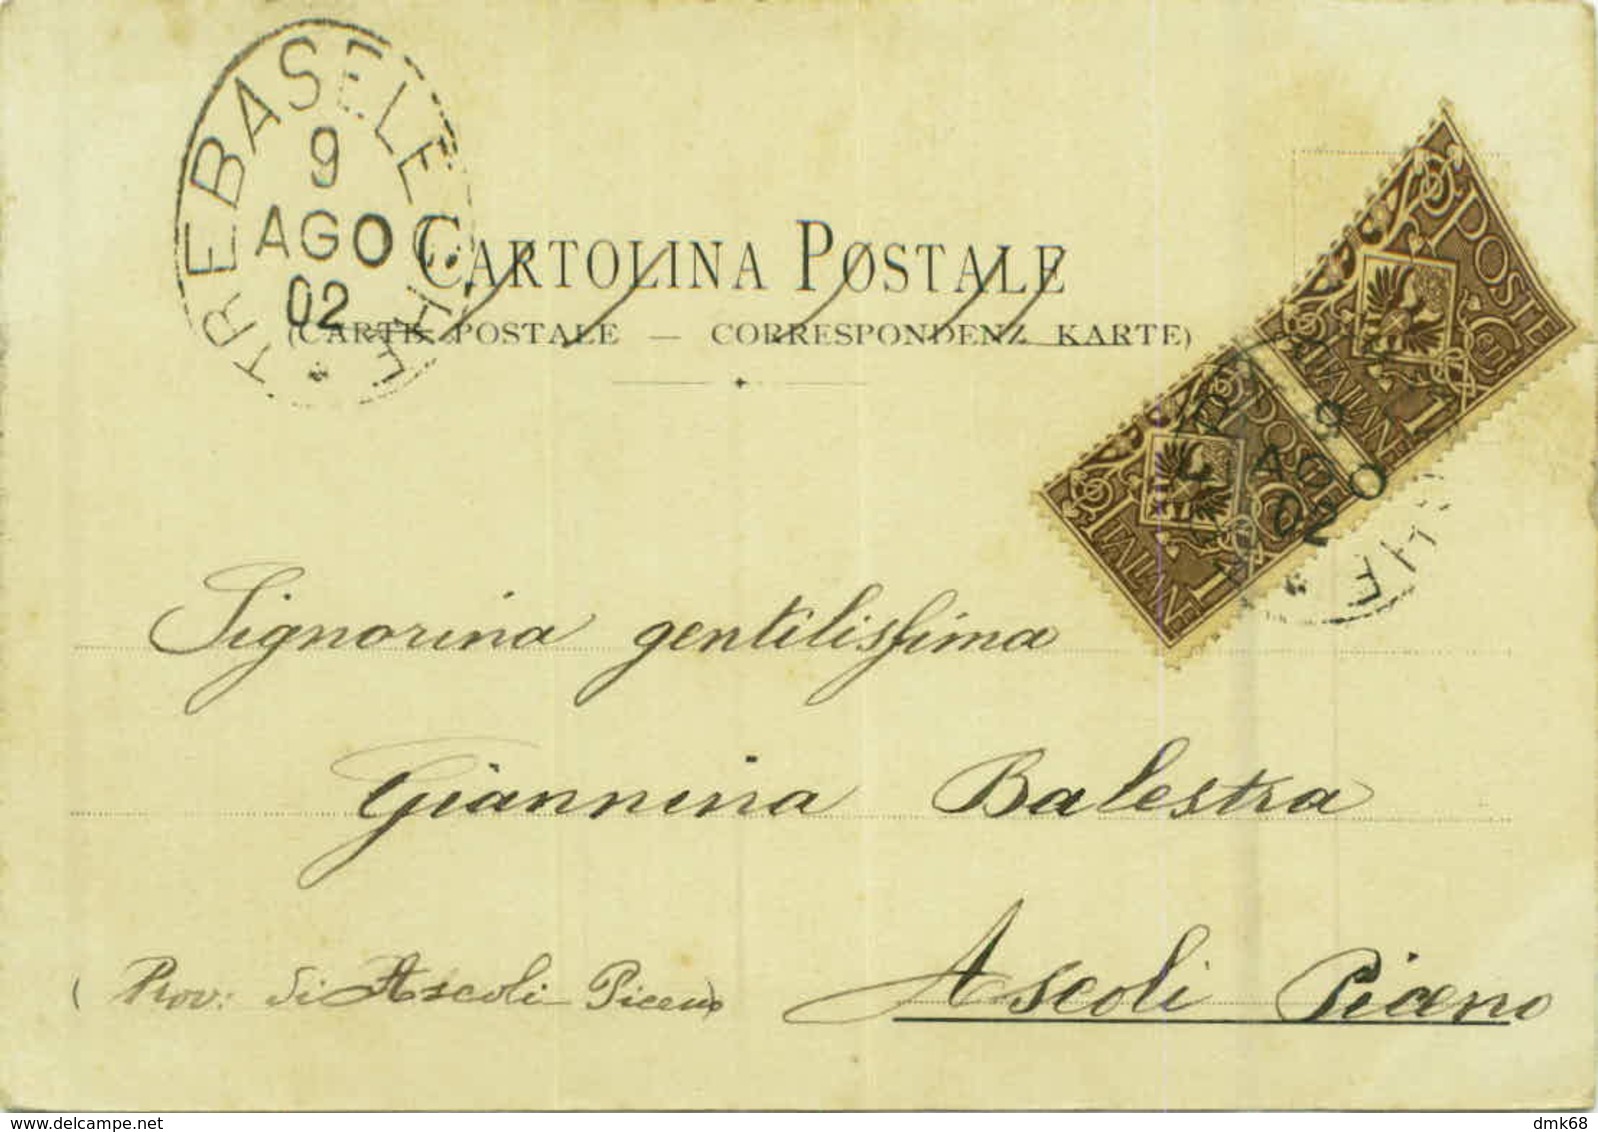 TREBASELEGHE
9
AGO
02
CARTOLINA POSTALE
(CARTE POSTALE — CORRESPONDENZ KARTE)
POSTE
ITALIANE
Cen. 1
POSTE
ITALIANE
Cen. 1
9
AGO
02
HE
Signorina gentilissima
Giannina Balestra
(Prov: di Ascoli Piceno)
Ascoli Piceno
dmk68